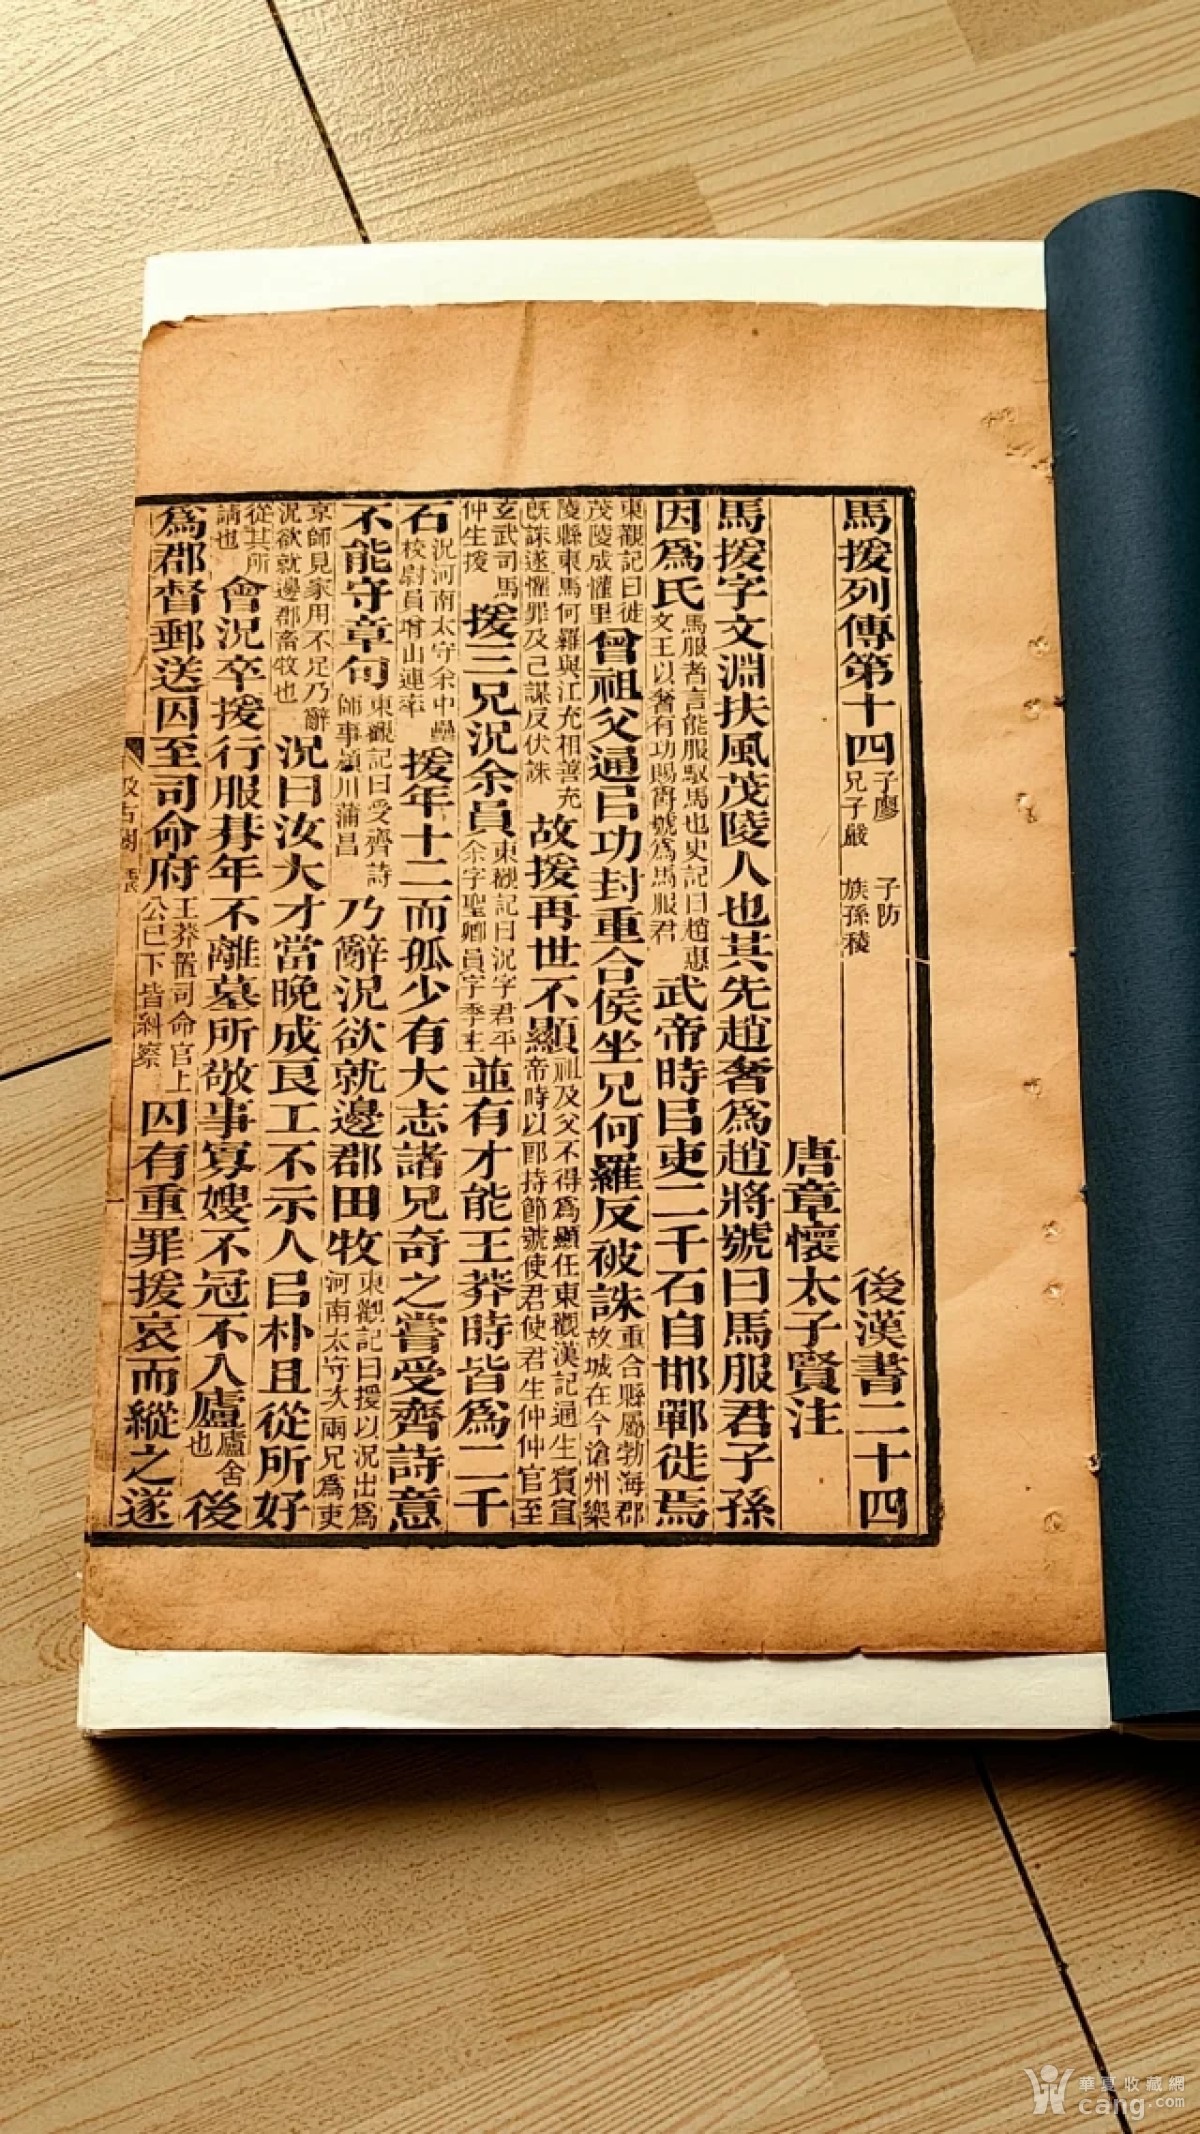 馬援列傳第十四 子廖 子防 兄子嚴 族孫稜 後漢書二十四
唐章懷太子賢注
馬援字文淵扶風茂陵人也其先趙奢爲趙將號曰馬服君子孫
因爲氏 馬服者言能服馭馬也史記曰趙惠文王以奢有功賜爵號爲馬服君 武帝時㠯吏二千石自邯鄲徙焉
東觀記曰徙茂陵成懽里 曾祖父通㠯功封重合侯坐兄何羅反被誅 重合縣屬勃海郡故城在今滄州樂
陵縣東馬何羅與江充祖善充旣誅遂懼罪及己謀反伏誅 故援再世不顯 祖及父不得爲顯任東觀漢記通生賓宣帝時以郎持節號使君使君生仲仲官至
玄武司馬仲生援 援三兄況余員 東觀記曰況字君平余字聖卿員字季主 並有才能王莽時皆爲二千
石 況河南太守余中壘校尉員增山連率 援年十二而孤少有大志諸兄奇之嘗受齊詩意
不能守章句 東觀記曰受齊詩師事潁川蒲昌 乃辭況欲就邊郡田牧 東觀記曰援以況出爲河南太守次兩兄爲吏
京師見家用不足乃辭況欲就邊郡畜牧也 況曰汝大才當晚成良工不示人㠯朴且從所好
從其所請也 會況卒援行服朞年不離墓所敬事寡嫂不冠不入廬 廬舍也 後
爲郡督郵送囚至司命府 王莽置司命官上公已下皆糾察 囚有重罪援哀而縱之遂
汲古閣 毛氏
華夏收藏網
cang.com